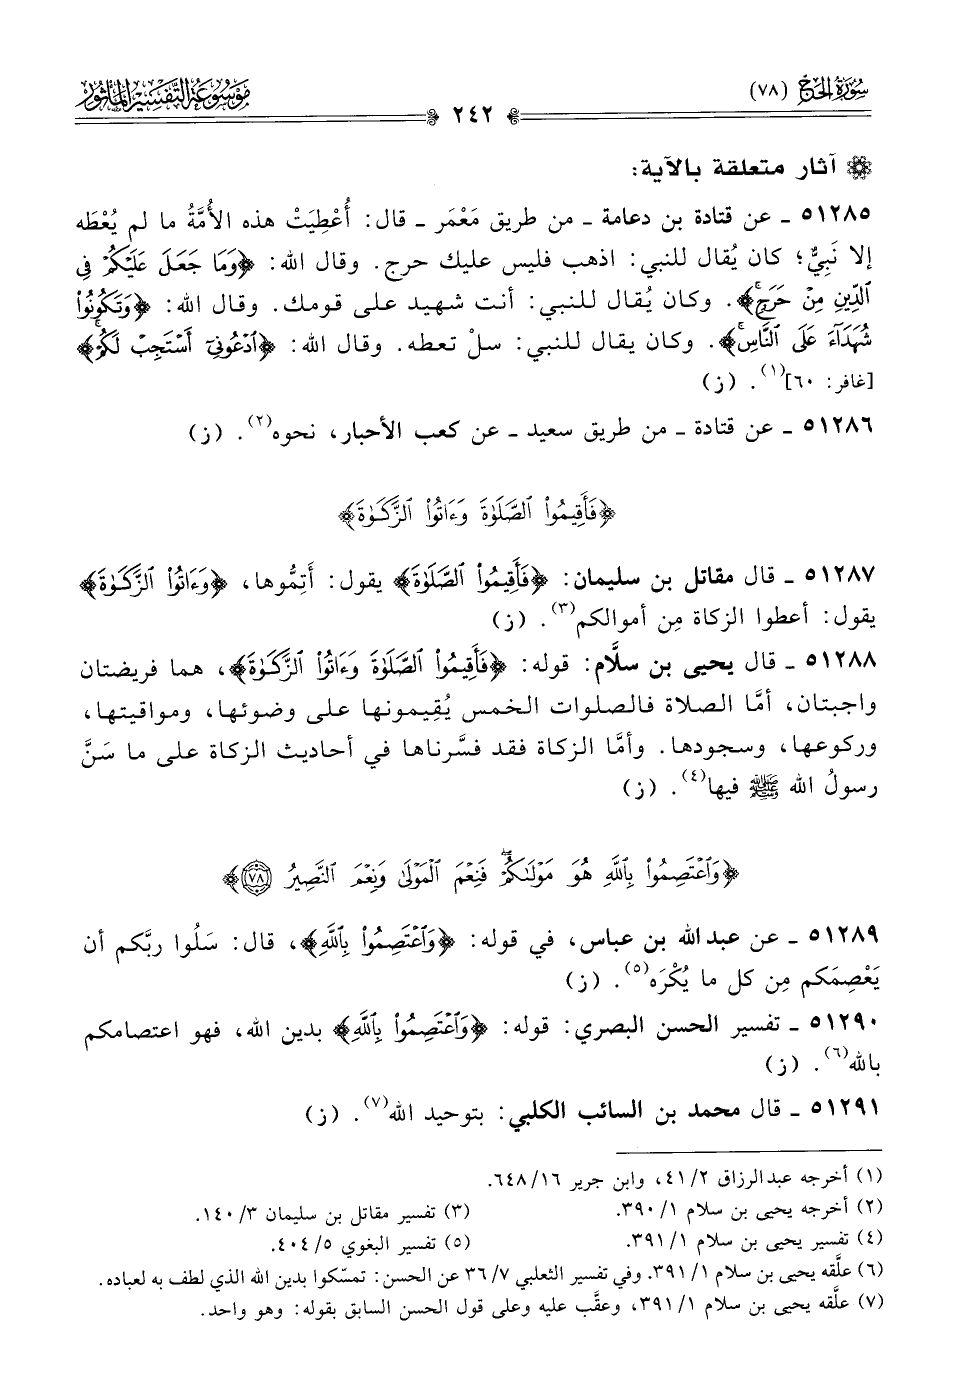 سُورَةُ الحَجِّ (٧٨)
٢٤٢
مَوْسُوعَة التَّفْسِيرِ المَأْثُور
آثار متعلقة بالآية:
٥١٢٨٥ ـ عن قتادة بن دعامة ـ من طريق مَعْمَر ـ قال: أُعْطِيَتْ هذه الأُمَّةُ ما لم يُعْطَه
إلا نَبِيٌّ؛ كان يُقال للنبي: اذهب فليس عليك حرج. وقال الله: ﴿وَمَا جَعَلَ عَلَيْكُمْ فِى
ٱلدِّينِ مِنْ حَرَجٍۚ﴾. وكان يُقال للنبي: أنت شهيد على قومك. وقال الله: ﴿وَتَكُونُوا۟
شُهَدَآءَ عَلَى ٱلنَّاسِۚ﴾. وكان يقال للنبي: سلْ تعطه. وقال الله: ﴿ٱدْعُونِىٓ أَسْتَجِبْ لَكُمْۚ﴾
[غافر: ٦٠](١). (ز)
٥١٢٨٦ ـ عن قتادة ـ من طريق سعيد ـ عن كعب الأحبار، نحوه(٢). (ز)
﴿فَأَقِيمُوا۟ ٱلصَّلَوٰةَ وَءَاتُوا۟ ٱلزَّكَوٰةَ﴾
٥١٢٨٧ ـ قال مقاتل بن سليمان: ﴿فَأَقِيمُوا۟ ٱلصَّلَوٰةَ﴾ يقول: أَتِمُّوها، ﴿وَءَاتُوا۟ ٱلزَّكَوٰةَ﴾
يقول: أعطوا الزكاة مِن أموالكم(٣). (ز)
٥١٢٨٨ ـ قال يحيى بن سلَّام: قوله: ﴿فَأَقِيمُوا۟ ٱلصَّلَوٰةَ وَءَاتُوا۟ ٱلزَّكَوٰةَ﴾، هما فريضتان
واجبتان، أمَّا الصلاة فالصلوات الخمس يُقِيمونها على وضوئها، ومواقيتها،
وركوعها، وسجودها. وأمَّا الزكاة فقد فسَّرناها في أحاديث الزكاة على ما سَنَّ
رسولُ الله ﷺ فيها(٤). (ز)
﴿وَٱعْتَصِمُوا۟ بِٱللَّهِ هُوَ مَوْلَىٰكُمْۖ فَنِعْمَ ٱلْمَوْلَىٰ وَنِعْمَ ٱلنَّصِيرُ ٧٨﴾
٥١٢٨٩ ـ عن عبد الله بن عباس، في قوله: ﴿وَٱعْتَصِمُوا۟ بِٱللَّهِ﴾، قال: سَلُوا ربَّكم أن
يَعْصِمَكم مِن كل ما يُكْرَه(٥). (ز)
٥١٢٩٠ ـ تفسير الحسن البصري: قوله: ﴿وَٱعْتَصِمُوا۟ بِٱللَّهِ﴾ بدين الله، فهو اعتصامكم
بالله(٦). (ز)
٥١٢٩١ ـ قال محمد بن السائب الكلبي: بتوحيد الله(٧). (ز)
(١) أخرجه عبدالرزاق ٤١/٢، وابن جرير ٦٤٨/١٦.
(٢) أخرجه يحيى بن سلام ٣٩٠/١. (٣) تفسير مقاتل بن سليمان ١٤٠/٣.
(٤) تفسير يحيى بن سلام ٣٩١/١. (٥) تفسير البغوي ٤٠٤/٥.
(٦) علَّقه يحيى بن سلام ٣٩١/١. وفي تفسير الثعلبي ٣٦/٧ عن الحسن: تمسّكوا بدين الله الذي لطف به لعباده.
(٧) علَّقه يحيى بن سلام ٣٩١/١، وعقَّب عليه وعلى قول الحسن السابق بقوله: وهو واحد.